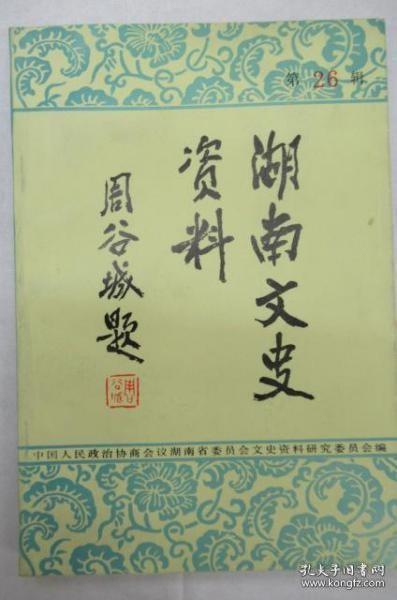 第26辑
湖南文史
资料
周谷城题
周谷城
中国人民政治协商会议湖南省委员会文史资料研究委员会编
孔夫子旧书网
www.kongfz.com